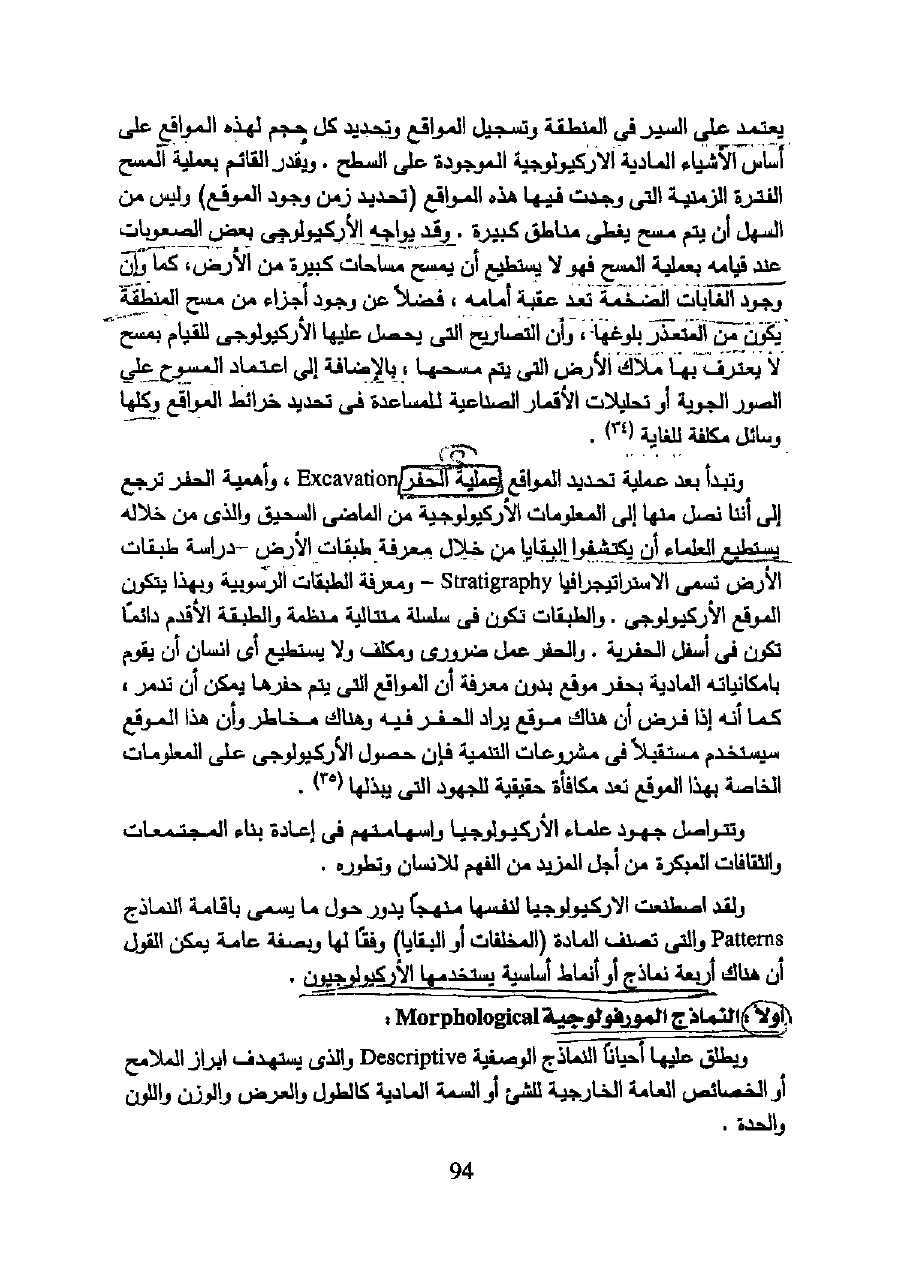 يعتمد على السير فى المنطقة وتسجيل المواقع وتحديد كل حجم لهذه المواقع على
أساس الأشياء المادية الاركيولوجية الموجودة على السطح . ويقدر القائم بعملية المسح
الفترة الزمنية التى وجدت فيها هذه المواقع (تحديد زمن وجود الموقع) وليس من
السهل أن يتم مسح يغطى مناطق كبيرة . وقد يواجه الأركيولوجى بعض الصعوبات
عند قيامه بعملية المسح فهو لا يستطيع أن يمسح مساحات كبيرة من الأرض، كما وأن
وجود الغابات الضخمة تعد عقبة أمامه ، فضلاً عن وجود أجزاء من مسح المنطقة
يكون من المتعذر بلوغها ، وأن التصاريح التى يحصل عليها الأركيولوجى للقيام بمسح
لا يعترف بها ملاك الأرض التى يتم مسحها ، بالإضافة إلى اعتماد المسوح على
الصور الجوية أو تحليلات الأقمار الصناعية للمساعدة فى تحديد خرائط المواقع وكلها
وسائل مكلفة للغاية (٣٤) .
وتبدأ بعد عملية تحديد المواقع عملية الحفر Excavation ، وأهمية الحفر ترجع
إلى أننا نصل منها إلى المعلومات الأركيولوجية من الماضى السحيق والذى من خلاله
يستطيع العلماء أن يكتشفوا البقايا من خلال معرفة طبقات الأرض -دراسة طبقات
الأرض تسمى الاستراتيجرافيا Stratigraphy – ومعرفة الطبقات الرسوبية وبهذا يتكون
الموقع الأركيولوجى . والطبقات تكون فى سلسلة متتالية منظمة والطبقة الأقدم دائماً
تكون فى أسفل الحفرية . والحفر عمل ضرورى ومكلف ولا يستطيع أى انسان أن يقوم
بامكانياته المادية بحفر موقع بدون معرفة أن المواقع التى يتم حفرها يمكن أن تدمر ،
كما أنه إذا فرض أن هناك موقع يراد الحفر فيه وهناك مخاطر وأن هذا الموقع
سيستخدم مستقبلاً فى مشروعات التنمية فإن حصول الأركيولوجى على المعلومات
الخاصة بهذا الموقع تعد مكافأة حقيقية للجهود التى يبذلها (٣٥) .
وتتواصل جهود علماء الأركيولوجيا واسهامتهم فى إعادة بناء المجتمعات
والثقافات المبكرة من أجل المزيد من الفهم للانسان وتطوره .
ولقد اصطنعت الاركيولوجيا لنفسها منهجاً يدور حول ما يسمى باقامة النماذج
Patterns والتى تصنف المادة (المخلفات أو البقايا) وفقاً لها وبصفة عامة يمكن القول
أن هناك أربعة نماذج أو أنماط أساسية يستخدمها الأركيولوجيون .
أولاً : النماذج المورفولوجية Morphological :
ويطلق عليها أحياناً النماذج الوصفية Descriptive والذى يستهدف ابراز الملامح
أو الخصائص العامة الخارجية للشئ أو السمة المادية كالطول والعرض والوزن واللون
والحدة .
94